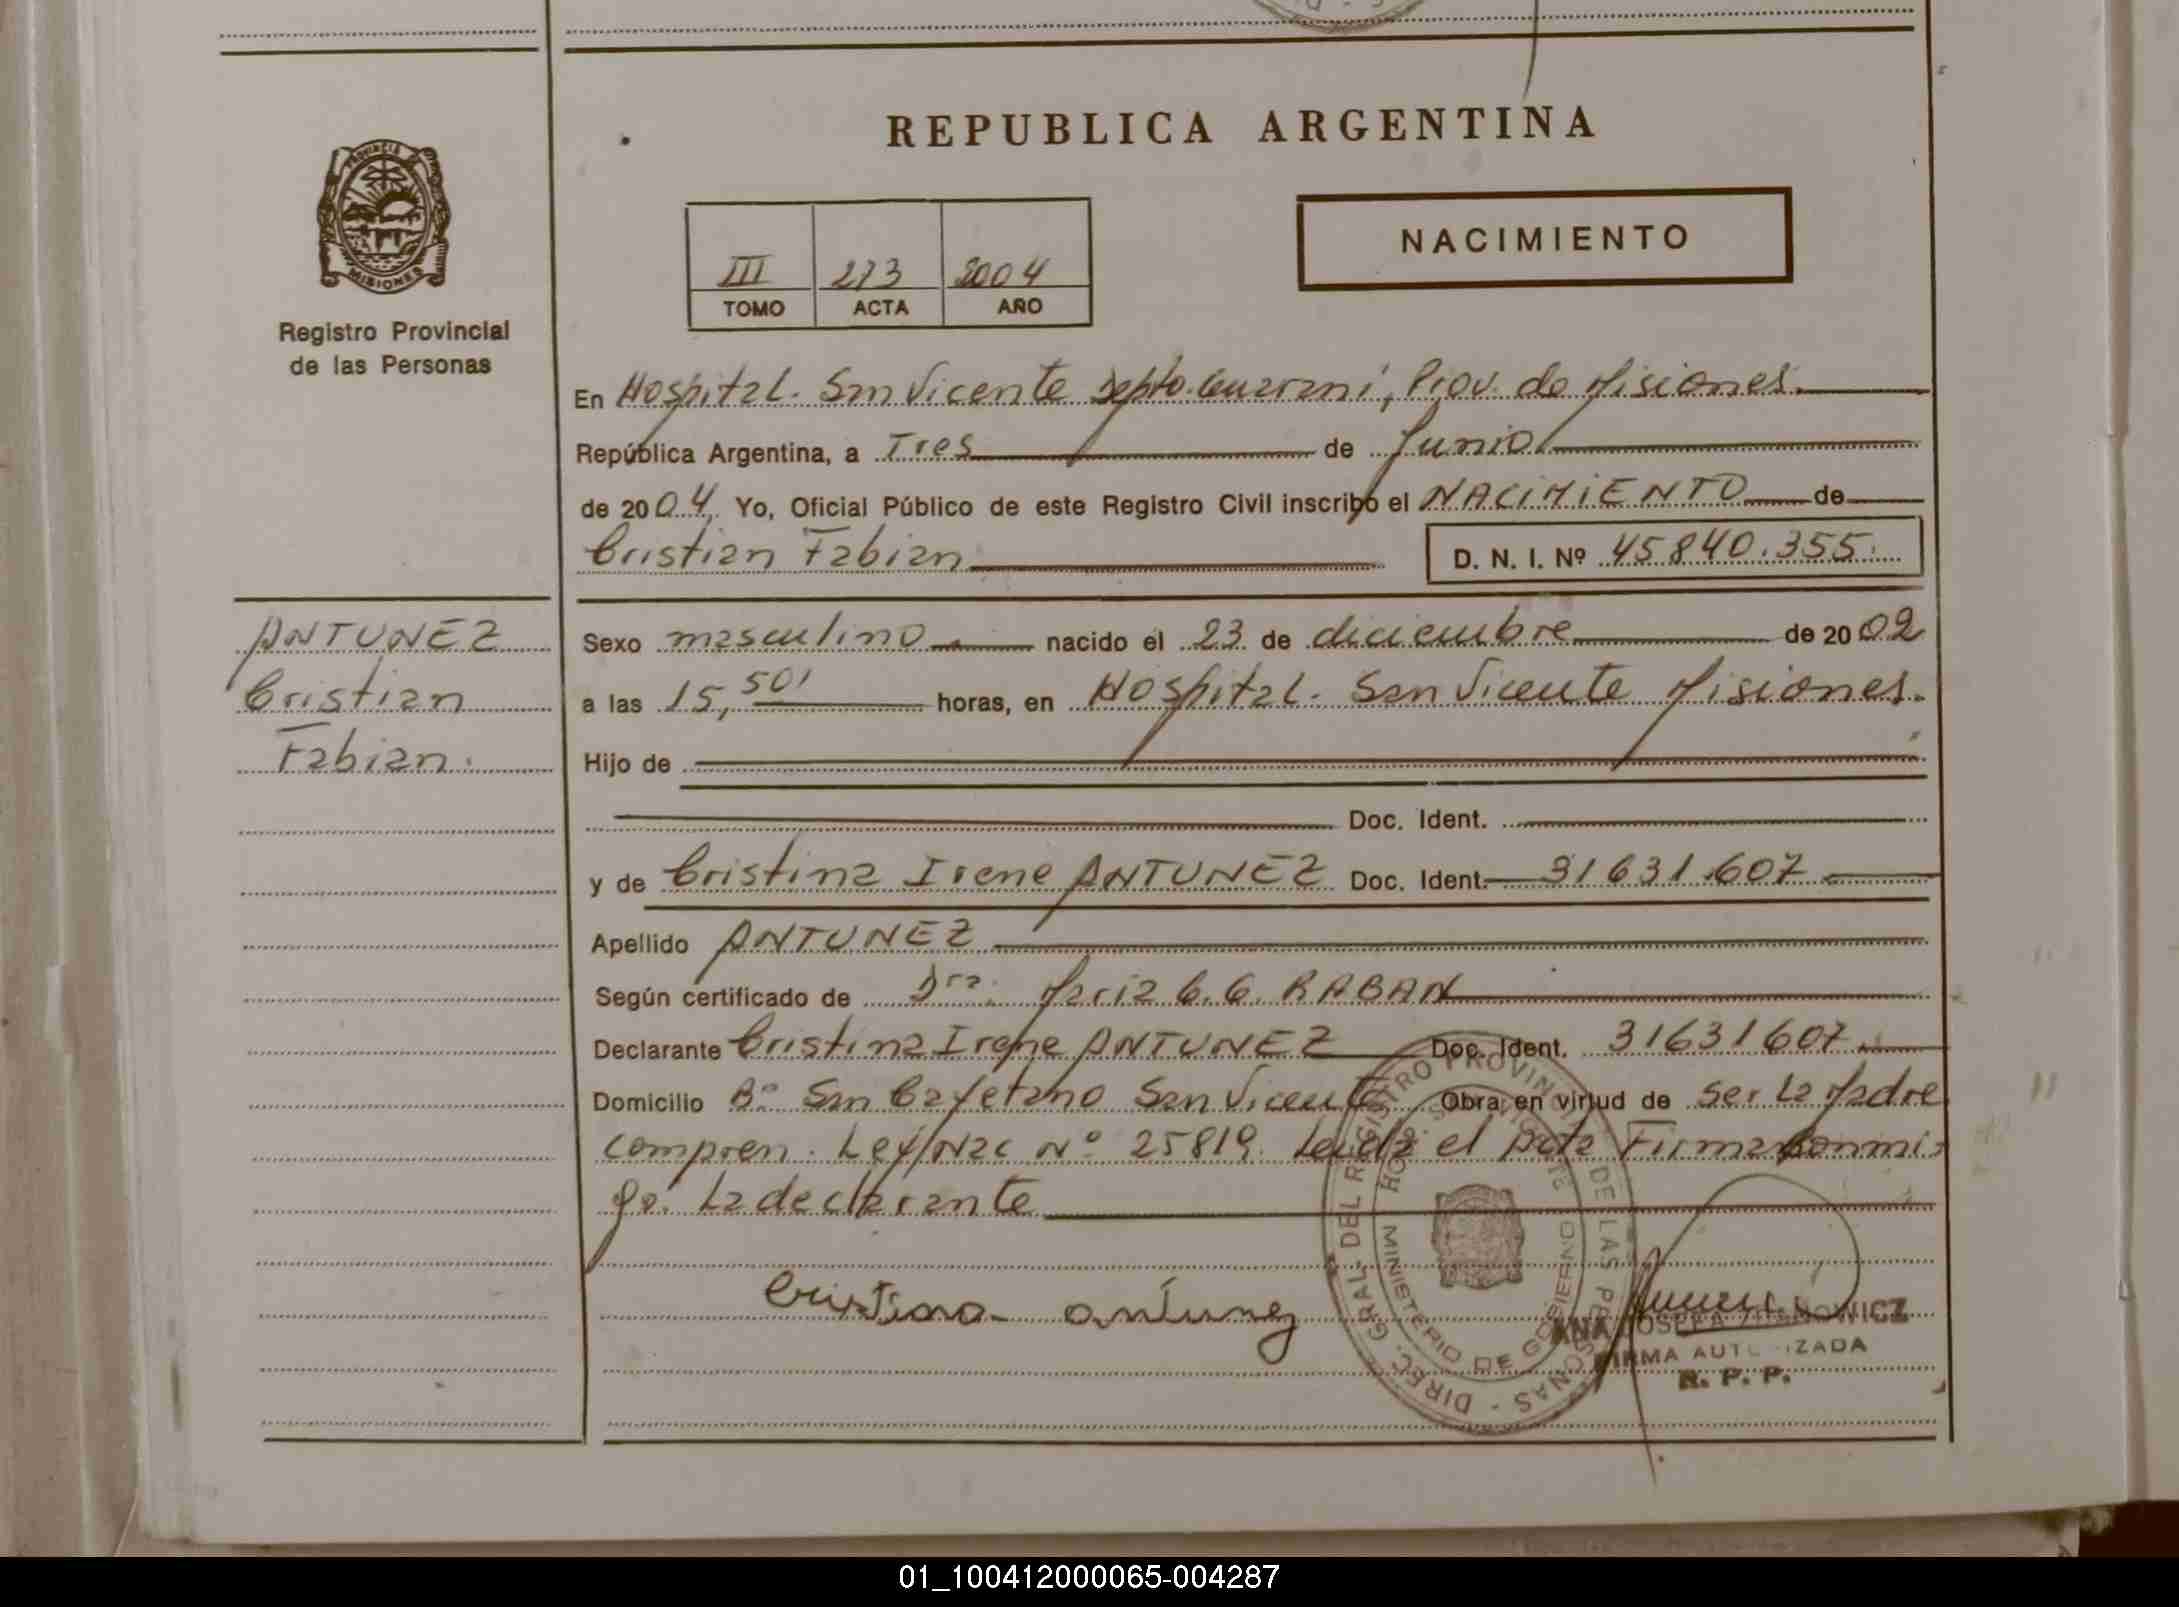 REPUBLICA ARGENTINA
PROVINCIA DE
MISIONES
Registro Provincial
de las Personas
NACIMIENTO
III 273 2004
TOMO ACTA AÑO
En Hospital. San Vicente Depto. Guarani, Prov. de Misiones.
República Argentina, a Tres de Junio
de 2004. Yo, Oficial Público de este Registro Civil inscribo el NACIMIENTO de
Cristian Fabian D. N. I. Nº 45840.355.
ANTUNEZ
Cristian
Fabian.
Sexo masculino nacido el 23 de diciembre de 2002
a las 15,50' horas, en Hospital. San Vicente Misiones.
Hijo de
Doc. Ident.
y de Cristina Irene ANTUNEZ Doc. Ident. 31631.607
Apellido ANTUNEZ
Según certificado de Dra. Maria G. G. RABAN
Declarante Cristina Irene ANTUNEZ Doc. Ident. 31631607
Domicilio Bº San Cayetano San Vicente Obra en virtud de ser la Madre
compren. Ley Nac Nº 25819. Leida el Acta Firma conmi-
go. La declarante
Cristina antunez
DIREC. GRAL. DEL REGISTRO PROVINCIAL DE LAS PERSONAS
MINISTERIO DE GOBIERNO
ANA
FIRMA AUTORIZADA
R. P. P.
01_100412000065-004287